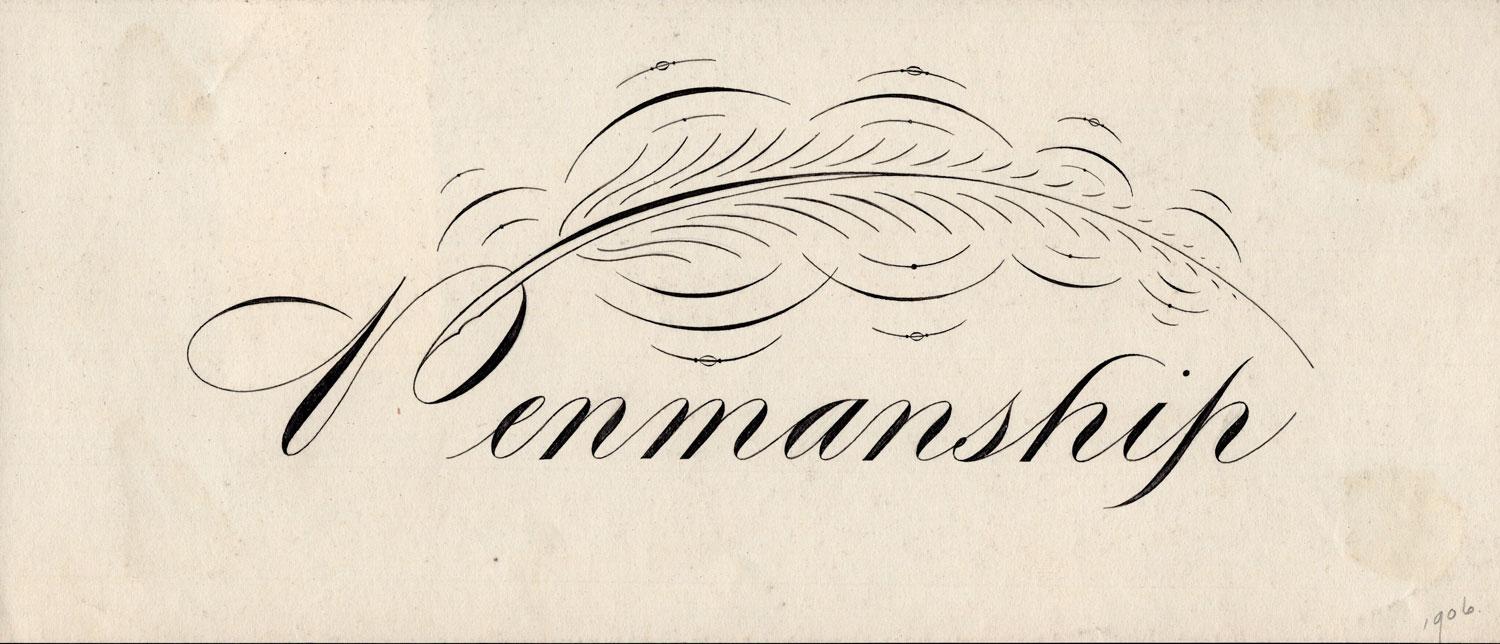 Penmanship
1906.